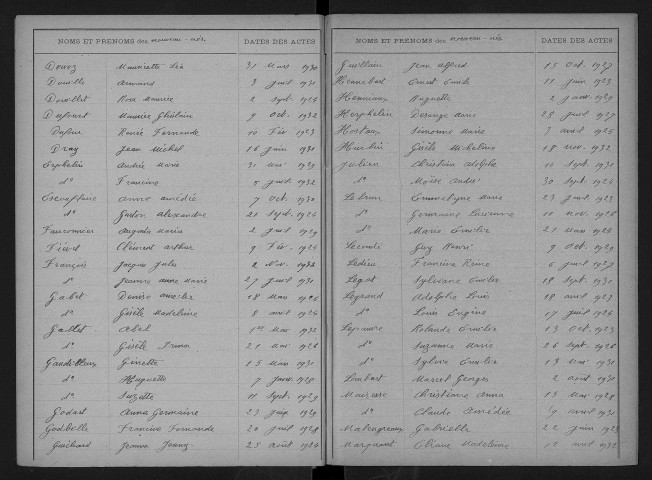 NOMS ET PRÉNOMS des nouveau-nés. DATES DES ACTES
Mauricette Léa 31 Mars 1930
Douille Armand 3 juil 1931
Douillet Rose Maurice 2 Sept. 1926
Dufour Maurice Ghislain 9 Oct. 1932
Dufour Renée Fernande 10 Fév 1923
Dray Jean Michel 16 juin 1931
Andrée Marie 31 Mai 1929
d° Francine 1932
Anne Amédée 7 Oct. 1930
d° Gaston Alexandre 21 Sept. 1926
Fauconnier Augusta Maria 2 juil 1929
Fiévet Clément Arthur 9 Fév. 1926
François Jacques Jules 2 Nov. 1932
d° Jeanne Anne Marie 27 1931
Gabet Denise 18 Mai
d° Gisèle Madeleine 8 Août 1926
Gallet Abel 1er Mai 1932
d° Gisèle Irma 21 Mai 1926
Ginette 15 Mars 1931
d° Huguette 7 Janv. 1928
d° Suzette 11 Sept. 1929
Godart Anna Germaine 23 1929
Francine Fernande 20 juil 1928
Guichard Jeanne 25 Août 1924
NOMS ET PRÉNOMS des nouveau-nés DATES DES ACTES
Guillain Jean Alfred 15 Oct. 1927
Hennebert Ernest Émile 11 juin 1923
Henniaux Huguette 2 Janv. 1929
Herphelin 1927
Hostaux Simonne Marie 3 Avril 1925
Hurbin Gisèle Micheline 18 Nov. 1932
Julien Christian Adolphe 10 Sept. 1931
d° Moïse André 30 Sept. 1924
Lebrun Marie 23 juil 1923
d° Germaine Lucienne 11 Nov. 1926
d° Marie Émilie 21 Mars 1926
Lecomte Guy Henri 9 Oct. 1929
Ledieu Francine Reine 6 juil 1927
Legat Sylviane Émilie 18 Sept. 1931
Legrand Adolphe Louis 18 Avril 1923
d° Louis Eugène 17 juil 1926
Rolande Émilie 13 Oct 1923
d° Suzanne Marie 26 Sept. 1926
d° Sylvie 13 Mai 1931
Lombart Marcel Georges 2 Août 1931
Mairesse Christiane Anna 13 Mai 1928
d° Claude Amédée Avril 1931
Malengreaux Gabrielle 22 juin 1923
Marquant Éliane Madeleine 12 Avril 1932